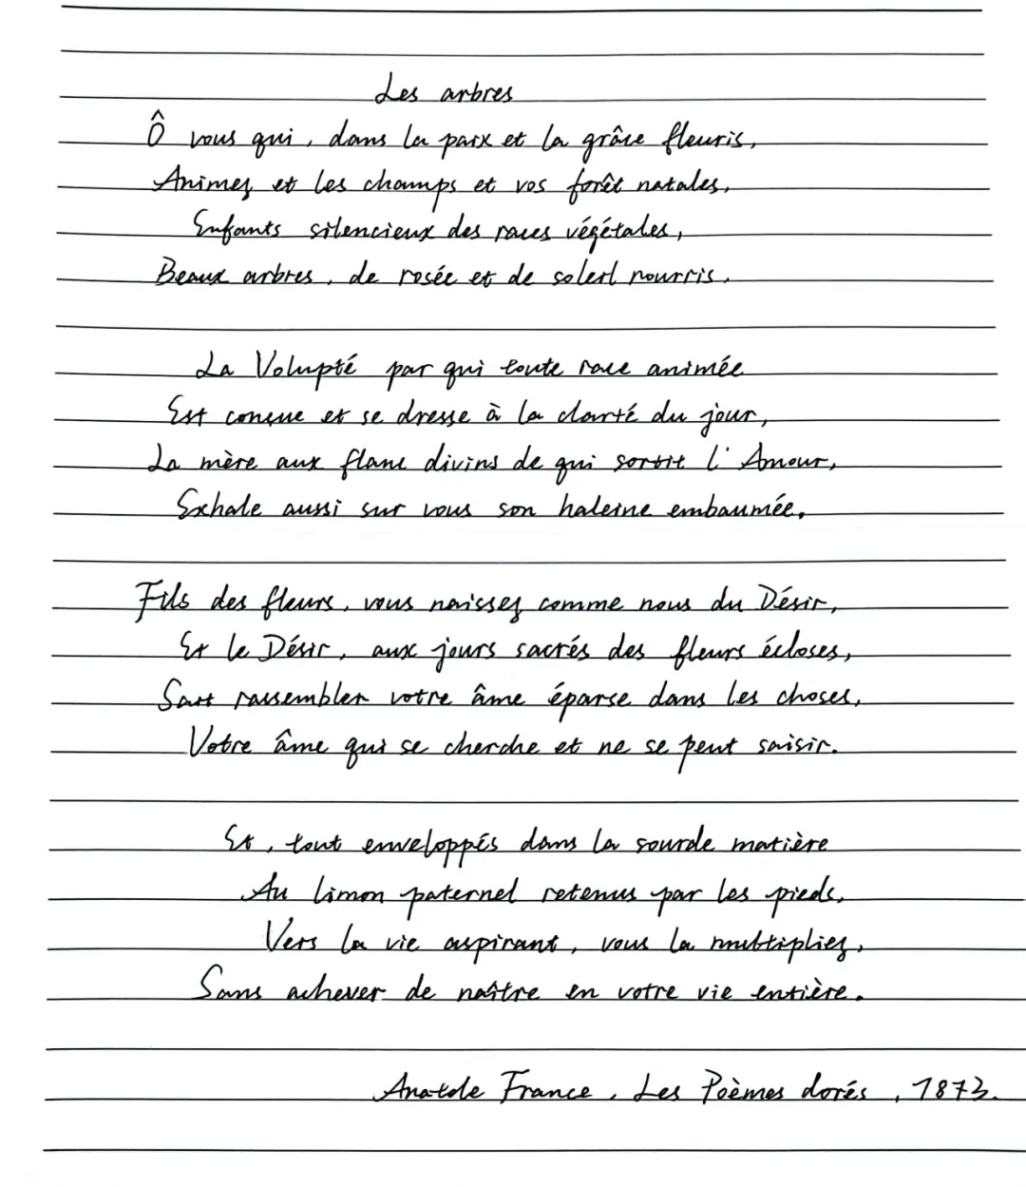 Les arbres
Ô vous qui, dans la paix et la grâce fleuris,
Animez et les champs et vos forêt natales,
Enfants silencieux des races végétales,
Beaux arbres, de rosée et de soleil nourris,
La Volupté par qui toute race animée
Est conçue et se dresse à la clarté du jour,
La mère aux flanc divins de qui sortit l'Amour,
Exhale aussi sur vous son haleine embaumée.
Fils des fleurs, vous naissez comme nous du Désir,
Et le Désir, aux jours sacrés des fleurs écloses,
Sait rassembler votre âme éparse dans les choses,
Votre âme qui se cherche et ne se peut saisir.
Et, tout enveloppés dans la sourde matière
Au limon paternel retenus par les pieds,
Vers la vie aspirant, vous la multipliez,
Sans achever de naître en votre vie entière.
Anatole France, Les Poèmes dorés, 1873.